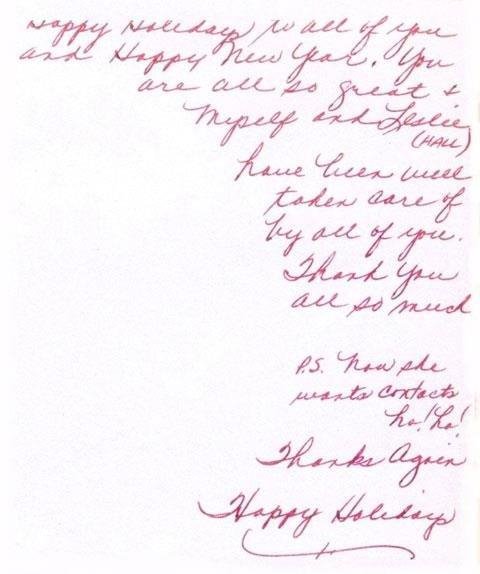 Happy Holidays to all of you
and Happy New Year. You
are all so great &
Myself and Leslie
(HALL)
have been well
taken care of
by all of you.
Thank You
all so much
P.S. Now she
wants contacts
ha! ha!
Thanks Again
Happy Holidays